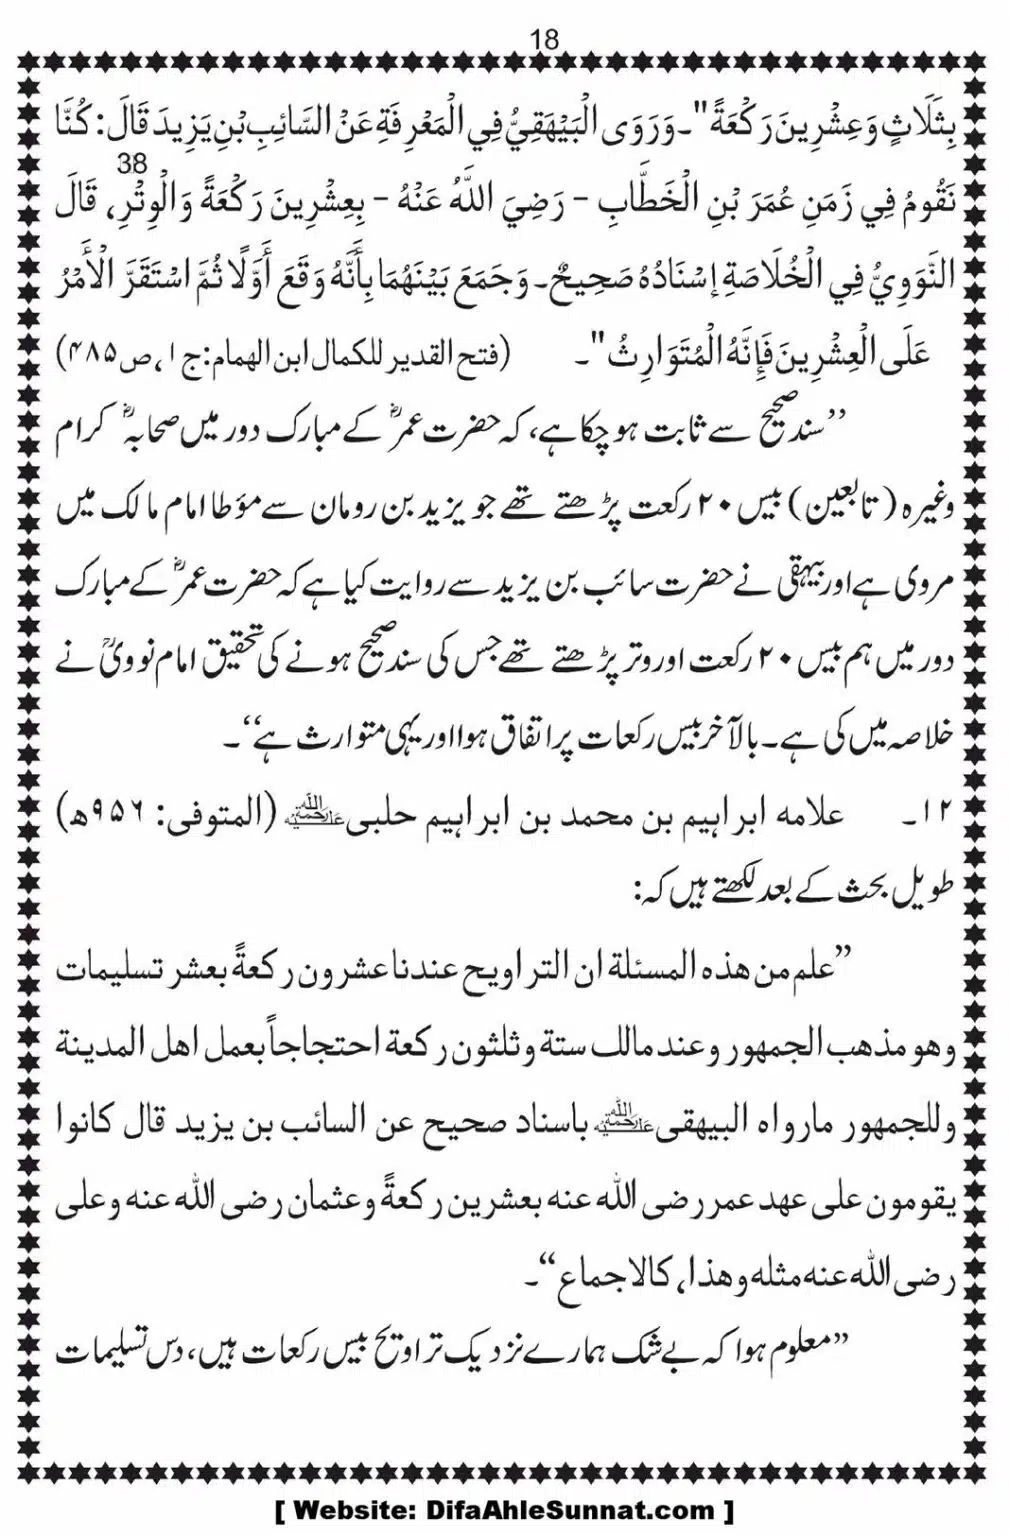 18
بِثَلَاثٍ وَعِشْرِينَ رَكْعَةً"۔ وَرَوَى الْبَيْهَقِيُّ فِي الْمَعْرِفَةِ عَنْ السَّائِبِ بْنِ يَزِيدَ قَالَ: كُنَّا
38
نَقُومُ فِي زَمَنِ عُمَرَ بْنِ الْخَطَّابِ - رَضِيَ اللَّهُ عَنْهُ - بِعِشْرِينَ رَكْعَةً وَالْوِتْرِ، قَالَ
النَّوَوِيُّ فِي الْخُلَاصَةِ إسْنَادُهُ صَحِيحٌ۔ وَجَمَعَ بَيْنَهُمَا بِأَنَّهُ وَقَعَ أَوَّلًا ثُمَّ اسْتَقَرَّ الْأَمْرُ
عَلَى الْعِشْرِينَ فَإِنَّهُ الْمُتَوَارِثُ"۔ (فتح القدير للكمال ابن الهمام: ج۱، ص۴۸۵)
’’سند صحیح سے ثابت ہو چکا ہے، کہ حضرت عمرؓ کے مبارک دور میں صحابہؓ کرام
وغیرہ (تابعین) بیس ۲۰ رکعت پڑھتے تھے جو یزید بن رومان سے مؤطا امام مالک میں
مروی ہے اور بیہقی نے حضرت سائب بن یزید سے روایت کیا ہے کہ حضرت عمرؓ کے مبارک
دور میں ہم بیس ۲۰ رکعت اور وتر پڑھتے تھے جس کی سند صحیح ہونے کی تحقیق امام نوویؒ نے
خلاصہ میں کی ہے۔ بالآخر بیس رکعات پر اتفاق ہوا اور یہی متوارث ہے‘‘۔
۱۲۔ علامہ ابراہیم بن محمد بن ابراہیم حلبی رحمۃ اللہ علیہ (المتوفی: ۹۵۶ھ)
طویل بحث کے بعد لکھتے ہیں کہ:
”علم من هذه المسئلة ان التراويح عندنا عشرون ركعةً بعشر تسليمات
وهو مذهب الجمهور وعند مالك ستة وثلثون ركعة احتجاجاً بعمل اهل المدينة
وللجمهور مارواه البيهقى رحمۃ اللہ علیہ باسناد صحيح عن السائب بن يزيد قال كانوا
يقومون على عهد عمر رضى الله عنه بعشرين ركعةً وعثمان رضى الله عنه وعلى
رضى الله عنه مثله وهذا، كالاجماع“۔
”معلوم ہوا کہ بے شک ہمارے نزدیک تراویح بیس رکعات ہیں، دس تسلیمات
[ Website: DifaAhleSunnat.com ]